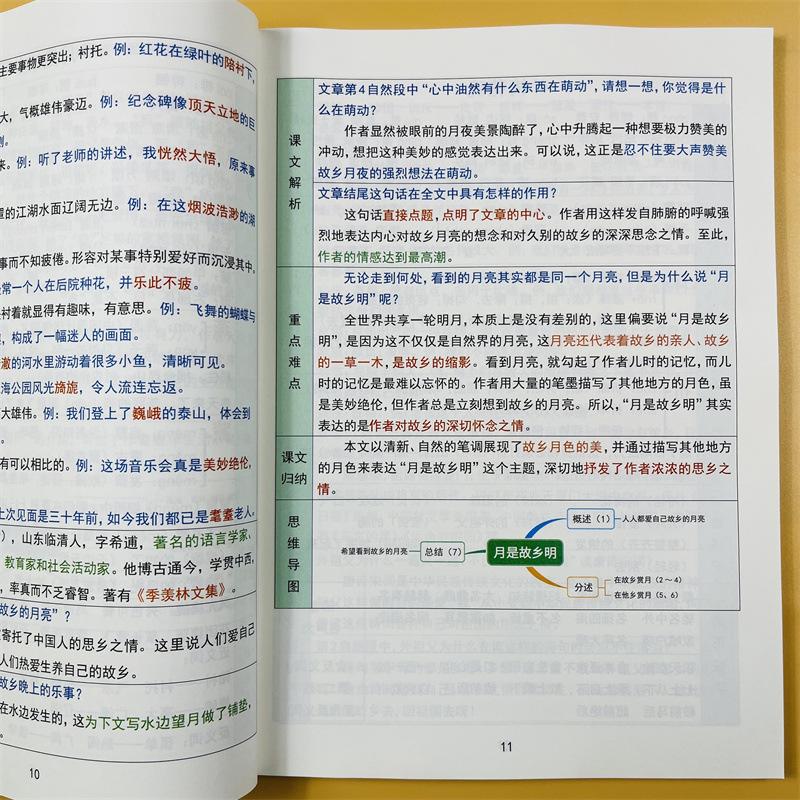 主要事物更突出；衬托。例：红花在绿叶的陪衬下，
大，气概雄伟豪迈。例：纪念碑像顶天立地的巨
来。例：听了老师的讲述，我恍然大悟，原来事
的江湖水面辽阔无边。例：在这烟波浩渺的湖
事而不知疲倦。形容对某事特别爱好而沉浸其中。
常一个人在后院种花，并乐此不疲。
衬着就显得有趣味，有意思。例：飞舞的蝴蝶与
，构成了一幅迷人的画面。
澈的河水里游动着很多小鱼，清晰可见。
海公园风光旖旎，令人流连忘返。
大雄伟。例：我们登上了巍峨的泰山，体会到
有可以相比的。例：这场音乐会真是美妙绝伦，
上次见面是三十年前，如今我们都已是耄耋老人。
），山东临清人，字希逋，著名的语言学家、
教育家和社会活动家。他博古通今，学贯中西，
，率真而不乏睿智。著有《季羡林文集》。
故乡的月亮”？
寄托了中国人的思乡之情。这里说人们爱自己
人们热爱生养自己的故乡。
故乡晚上的乐事？
在水边发生的，这为下文写水边望月做了铺垫，
10
课文解析
文章第4自然段中“心中油然有什么东西在萌动”，请想一想，你觉得是什
么在萌动？
作者显然被眼前的月夜美景陶醉了，心中升腾起一种想要极力赞美的
冲动，想把这种美妙的感觉表达出来。可以说，这正是忍不住要大声赞美
故乡月夜的强烈想法在萌动。
文章结尾这句话在全文中具有怎样的作用？
这句话直接点题，点明了文章的中心。作者用这样发自肺腑的呼喊强
烈地表达内心对故乡月亮的想念和对久别的故乡的深深思念之情。至此，
作者的情感达到最高潮。
重点难点
无论走到何处，看到的月亮其实都是同一个月亮，但是为什么说“月
是故乡明”呢？
全世界共享一轮明月，本质上是没有差别的，这里偏要说“月是故乡
明”，是因为这不仅仅是自然界的月亮，这月亮还代表着故乡的亲人、故乡
的一草一木，是故乡的缩影。看到月亮，就勾起了作者儿时的记忆，而儿
时的记忆是最难以忘怀的。作者用大量的笔墨描写了其他地方的月色，虽
是美妙绝伦，但作者总是立刻想到故乡的月亮。所以，“月是故乡明”其实
表达的是作者对故乡的深切怀念之情。
课文归纳
本文以清新、自然的笔调展现了故乡月色的美，并通过描写其他地方
的月色来表达“月是故乡明”这个主题，深切地抒发了作者浓浓的思乡之
情。
思维导图
概述（1）
人人都爱自己故乡的月亮
希望看到故乡的月亮
总结（7）
月是故乡明
分述
在故乡赏月（2～4）
在他乡赏月（5、6）
11